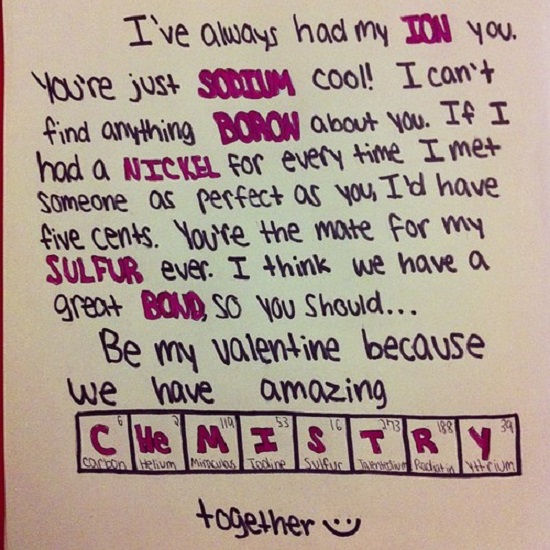 I've always had my ION you.
You're just SODIUM cool! I can't
find anything BORON about you. If I
had a NICKEL for every time I met
someone as perfect as you, I'd have
five cents. You're the mate for my
SULFUR ever. I think we have a
great BOND, so you should...
Be my valentine because
we have amazing
6 2 119 53 16 273 188 39
C He M I S T R Y
Carbon Helium Miraculous Iodine Sulfur Yttrium
together